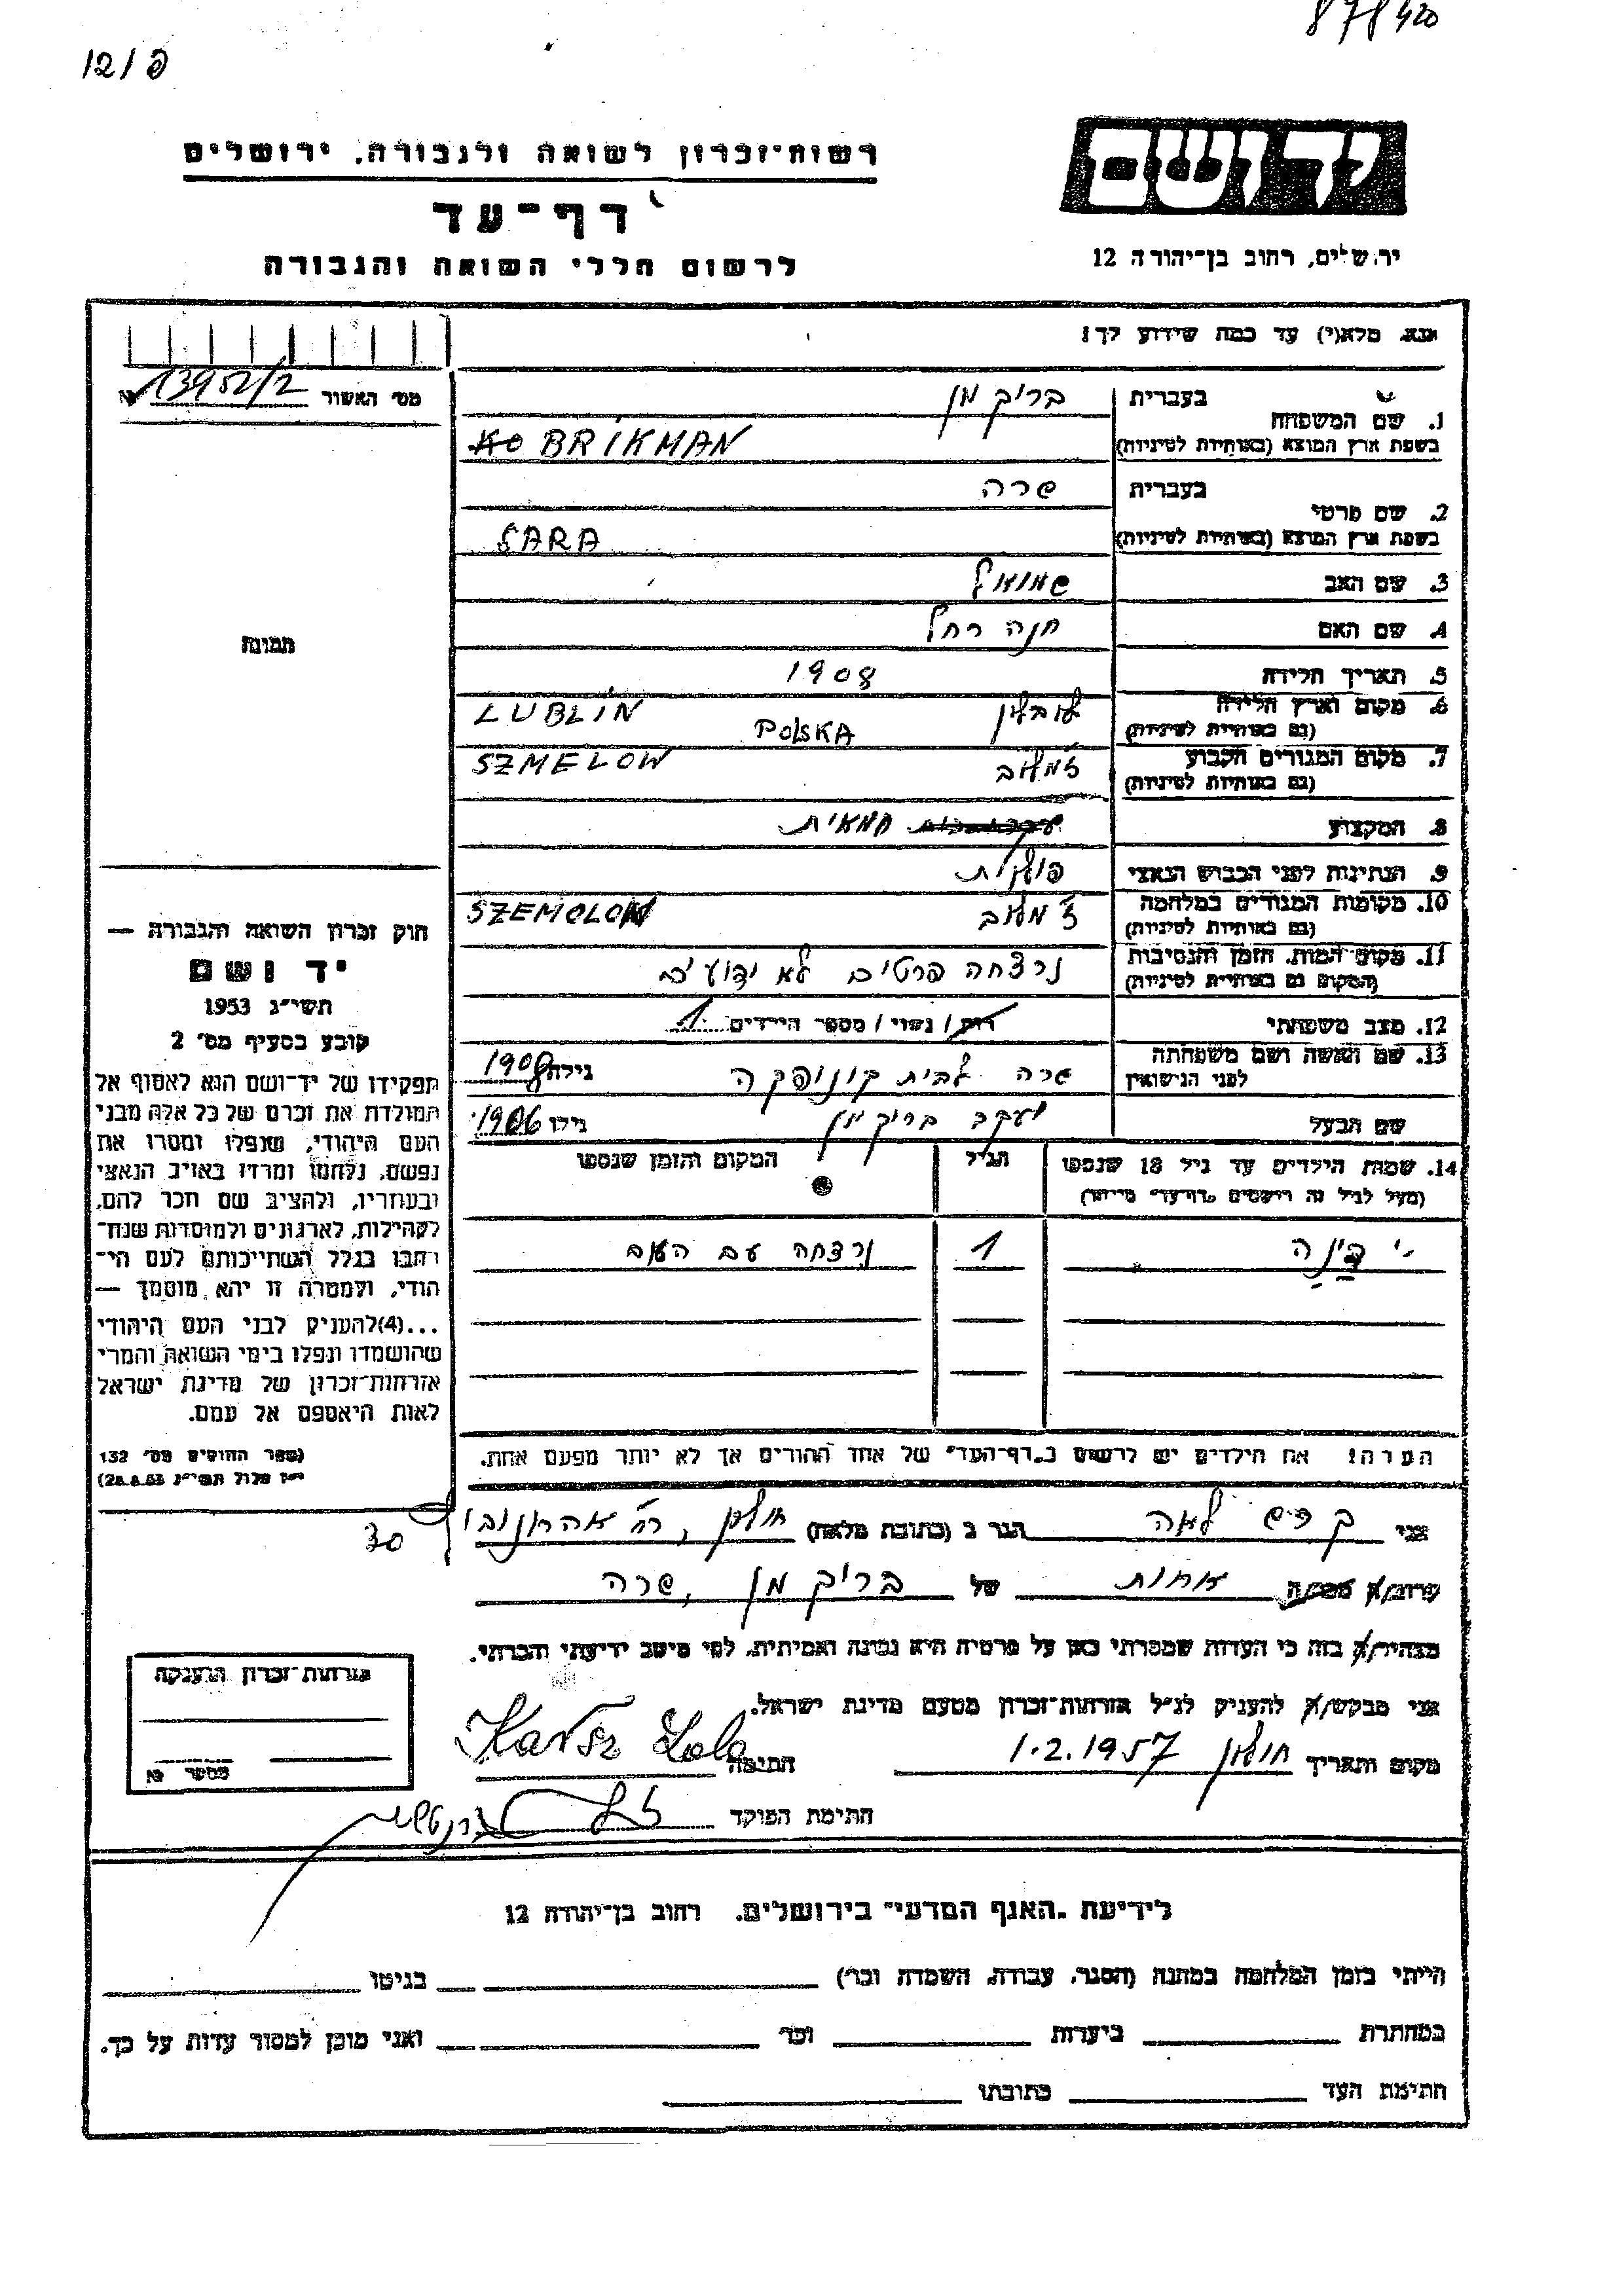 878420
12/פ
יד ושם
רשות־זכרון לשואה ולגבורה, ירושלים
דף־עד
לרשום חללי השואה והגבורה
ירושלים, רחוב בן־יהודה 12
אנא, מלא(י) עד כמה שידוע לך!
מס׳ האשור 13952/2
1. שם המשפחה
בעברית בריק מן
בשפת ארץ המוצא (באותיות לטיניות) BRIKMAN
2. שם פרטי
בעברית שרה
בשפת ארץ המוצא (באותיות לטיניות) SARA
3. שם האב שמואל
4. שם האם חנה רחל
5. תאריך הלידה 1908
6. מקום וארץ הלידה לובלין LUBLIN
(גם באותיות לטיניות) POLSKA
7. מקום המגורים הקבוע SZMELOW
(גם באותיות לטיניות)
8. המקצוע
9. הנתינות לפני הכבוש הנאצי פולנית
10. מקומות המגורים במלחמה SZEMOLOW
(גם באותיות לטיניות)
11. מקום המות, הזמן והנסיבות נרצחה פרטים לא ידועים
(המקום גם באותיות לטיניות)
12. מצב משפחתי רווק / נשוי / מספר הילדים 1
13. שם האשה ושם משפחתה שרה לבית קונופקה גילה 1908
לפני הנישואין
שם הבעל יעקב בריק מן גילו 1906
14. שמות הילדים עד גיל 18 שנספו הגיל המקום והזמן שנספו
(מעל לגיל זה רושמים „דף־עד״ מיוחד)
דינה 1 נרצחה עם האב
הערה: את הילדים יש לרשום ב„דף־העד״ של אחד ההורים אך לא יותר מפעם אחת.
תמונה
חוק זכרון השואה והגבורה —
יד ושם
תשי״ג 1953
קובע בסעיף מס׳ 2
תפקידו של יד־ושם הוא לאסוף אל
המולדת את זכרם של כל אלה מבני
העם היהודי, שנפלו ומסרו את
נפשם, נלחמו ומרדו באויב הנאצי
ובעוזריו, ולהציב שם וזכר להם,
לקהילות, לארגונים ולמוסדות שנח־
רבו בגלל השתייכותם לעם הי־
הודי, ולמטרה זו יהא מוסמך —
...(4)להעניק לבני העם היהודי
שהושמדו ונפלו בימי השואה והמרי
אזרחות־זכרון של מדינת ישראל
לאות היאספם אל עמם.
(ספר החוקים מס׳ 132
י״ז אלול תשי״ג 28.8.53)
אני לאה הגר ב (כתובת מלאה) חולון, רח׳
30
קרוב/ה מכר/ה אחות של בריק מן, שרה
מצהיר/ה בזה כי העדות שמסרתי כאן על פרטיה היא נכונה ואמיתית, לפי מיטב ידיעתי והכרתי.
אני מבקש/ת להעניק לנ״ל אזרחות־זכרון מטעם מדינת ישראל.
מקום ותאריך חולון 1.2.1957 חתימה Lola
חתימת הפוקד
אזרחות־זכרון הוענקה
מספר
לידיעת „האגף המדעי״ בירושלים, רחוב בן־יהודה 12
הייתי בזמן המלחמה במחנה (הסגר, עבודה, השמדה וכו׳) בגיטו
במחתרת ביערות וכו׳ ואני מוכן למסור עדות על כך.
חתימת העד כתובתו